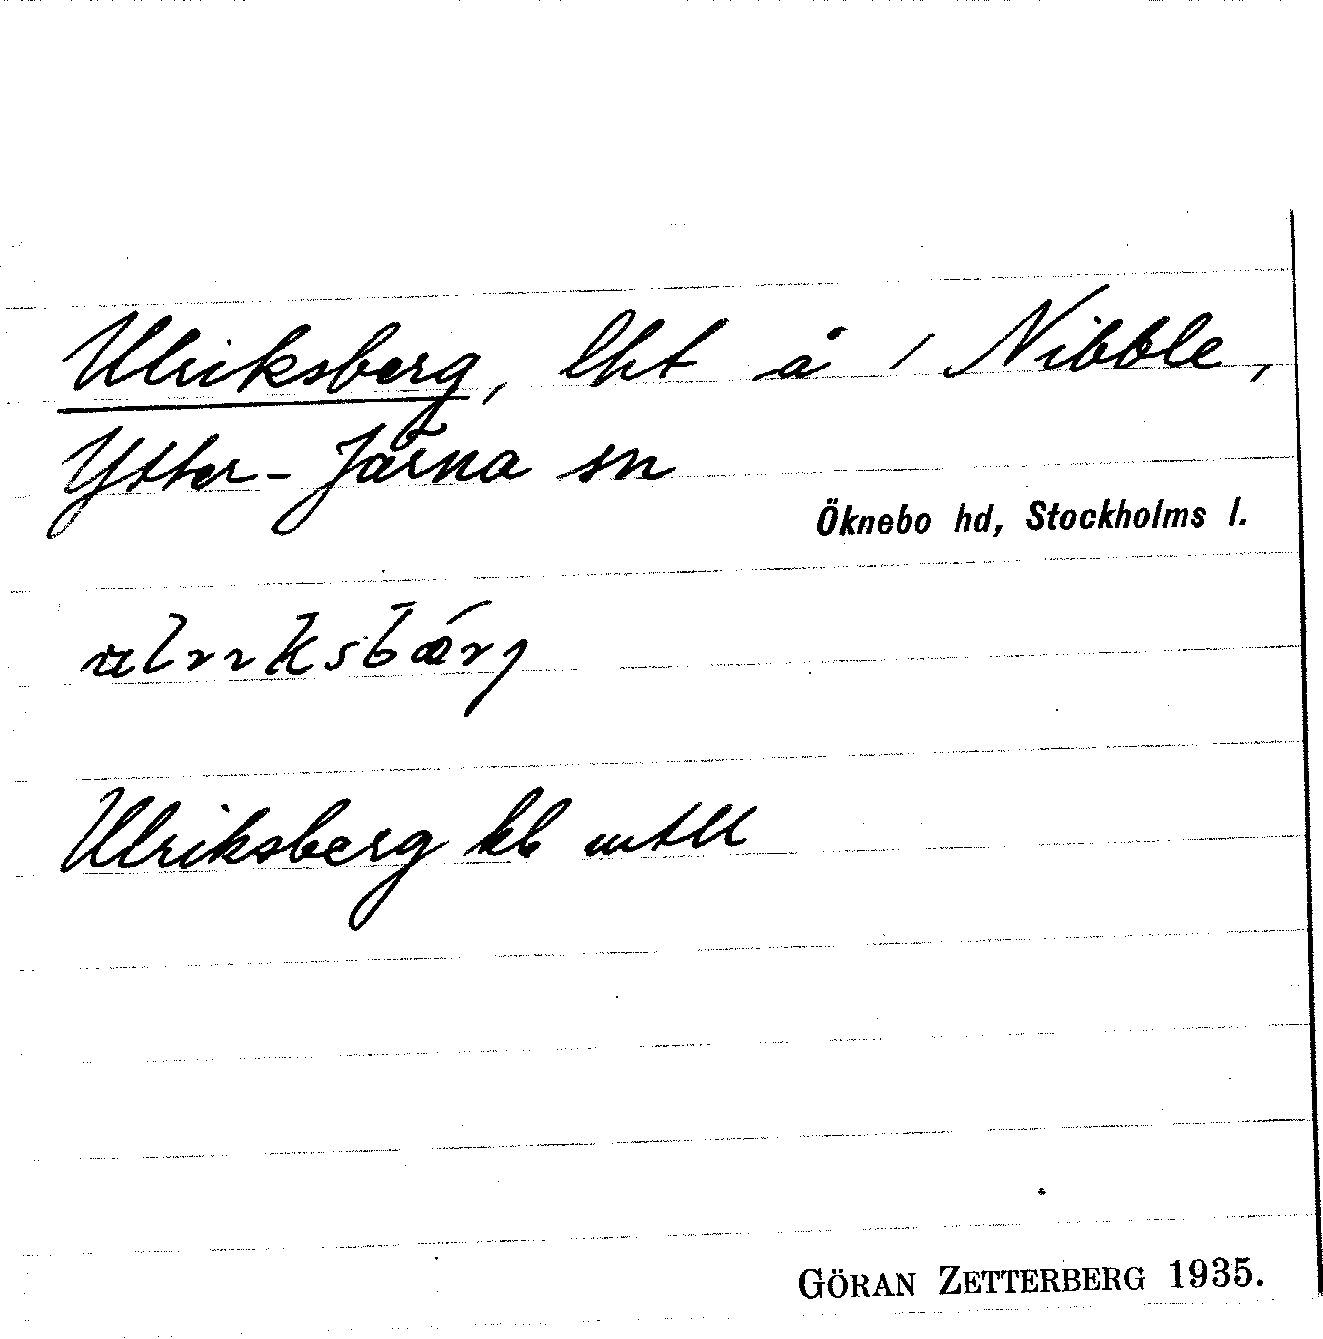 Ulriksberg, lht å / Nibble,
Ytter-Järna sn
Öknebo hd, Stockholms l.
Ulriksberg kb mtll
GÖRAN ZETTERBERG 1935.